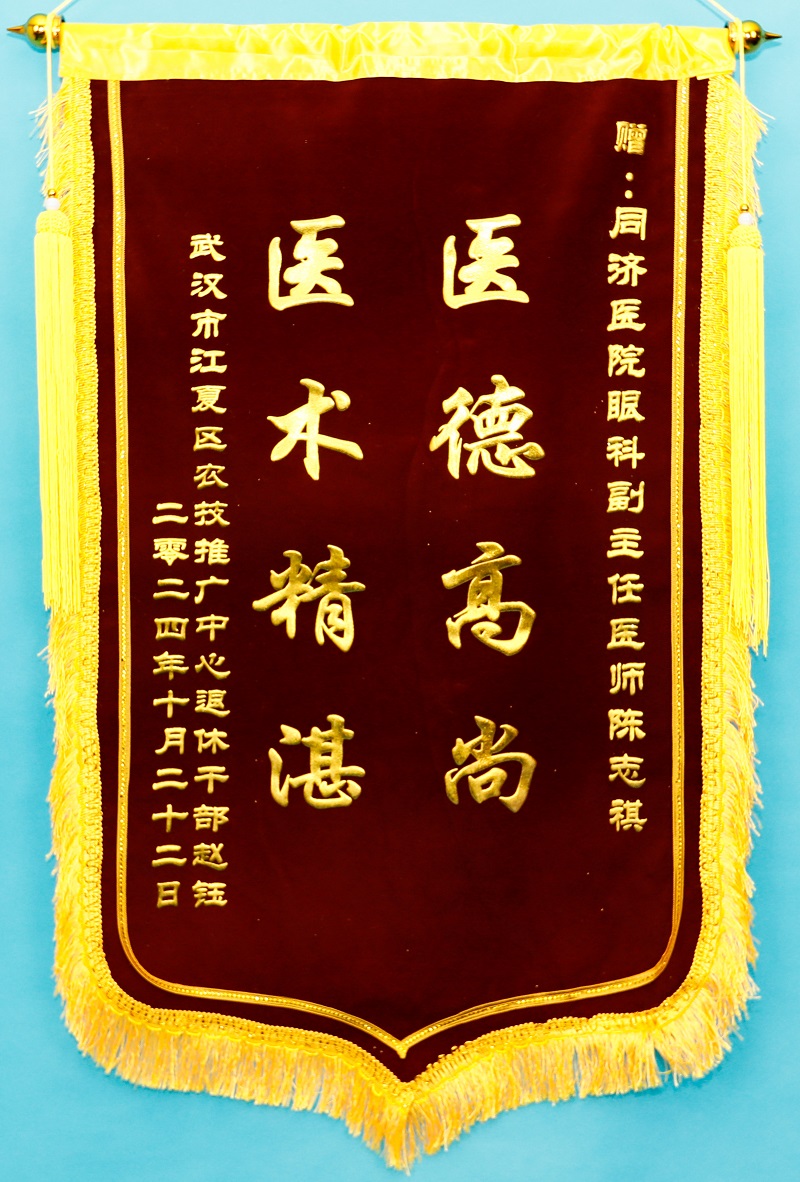 赠：同济医院眼科副主任医师陈志祺
医德高尚
医术精湛
武汉市江夏区农技推广中心退休干部赵钰
二零二四年十月二十二日